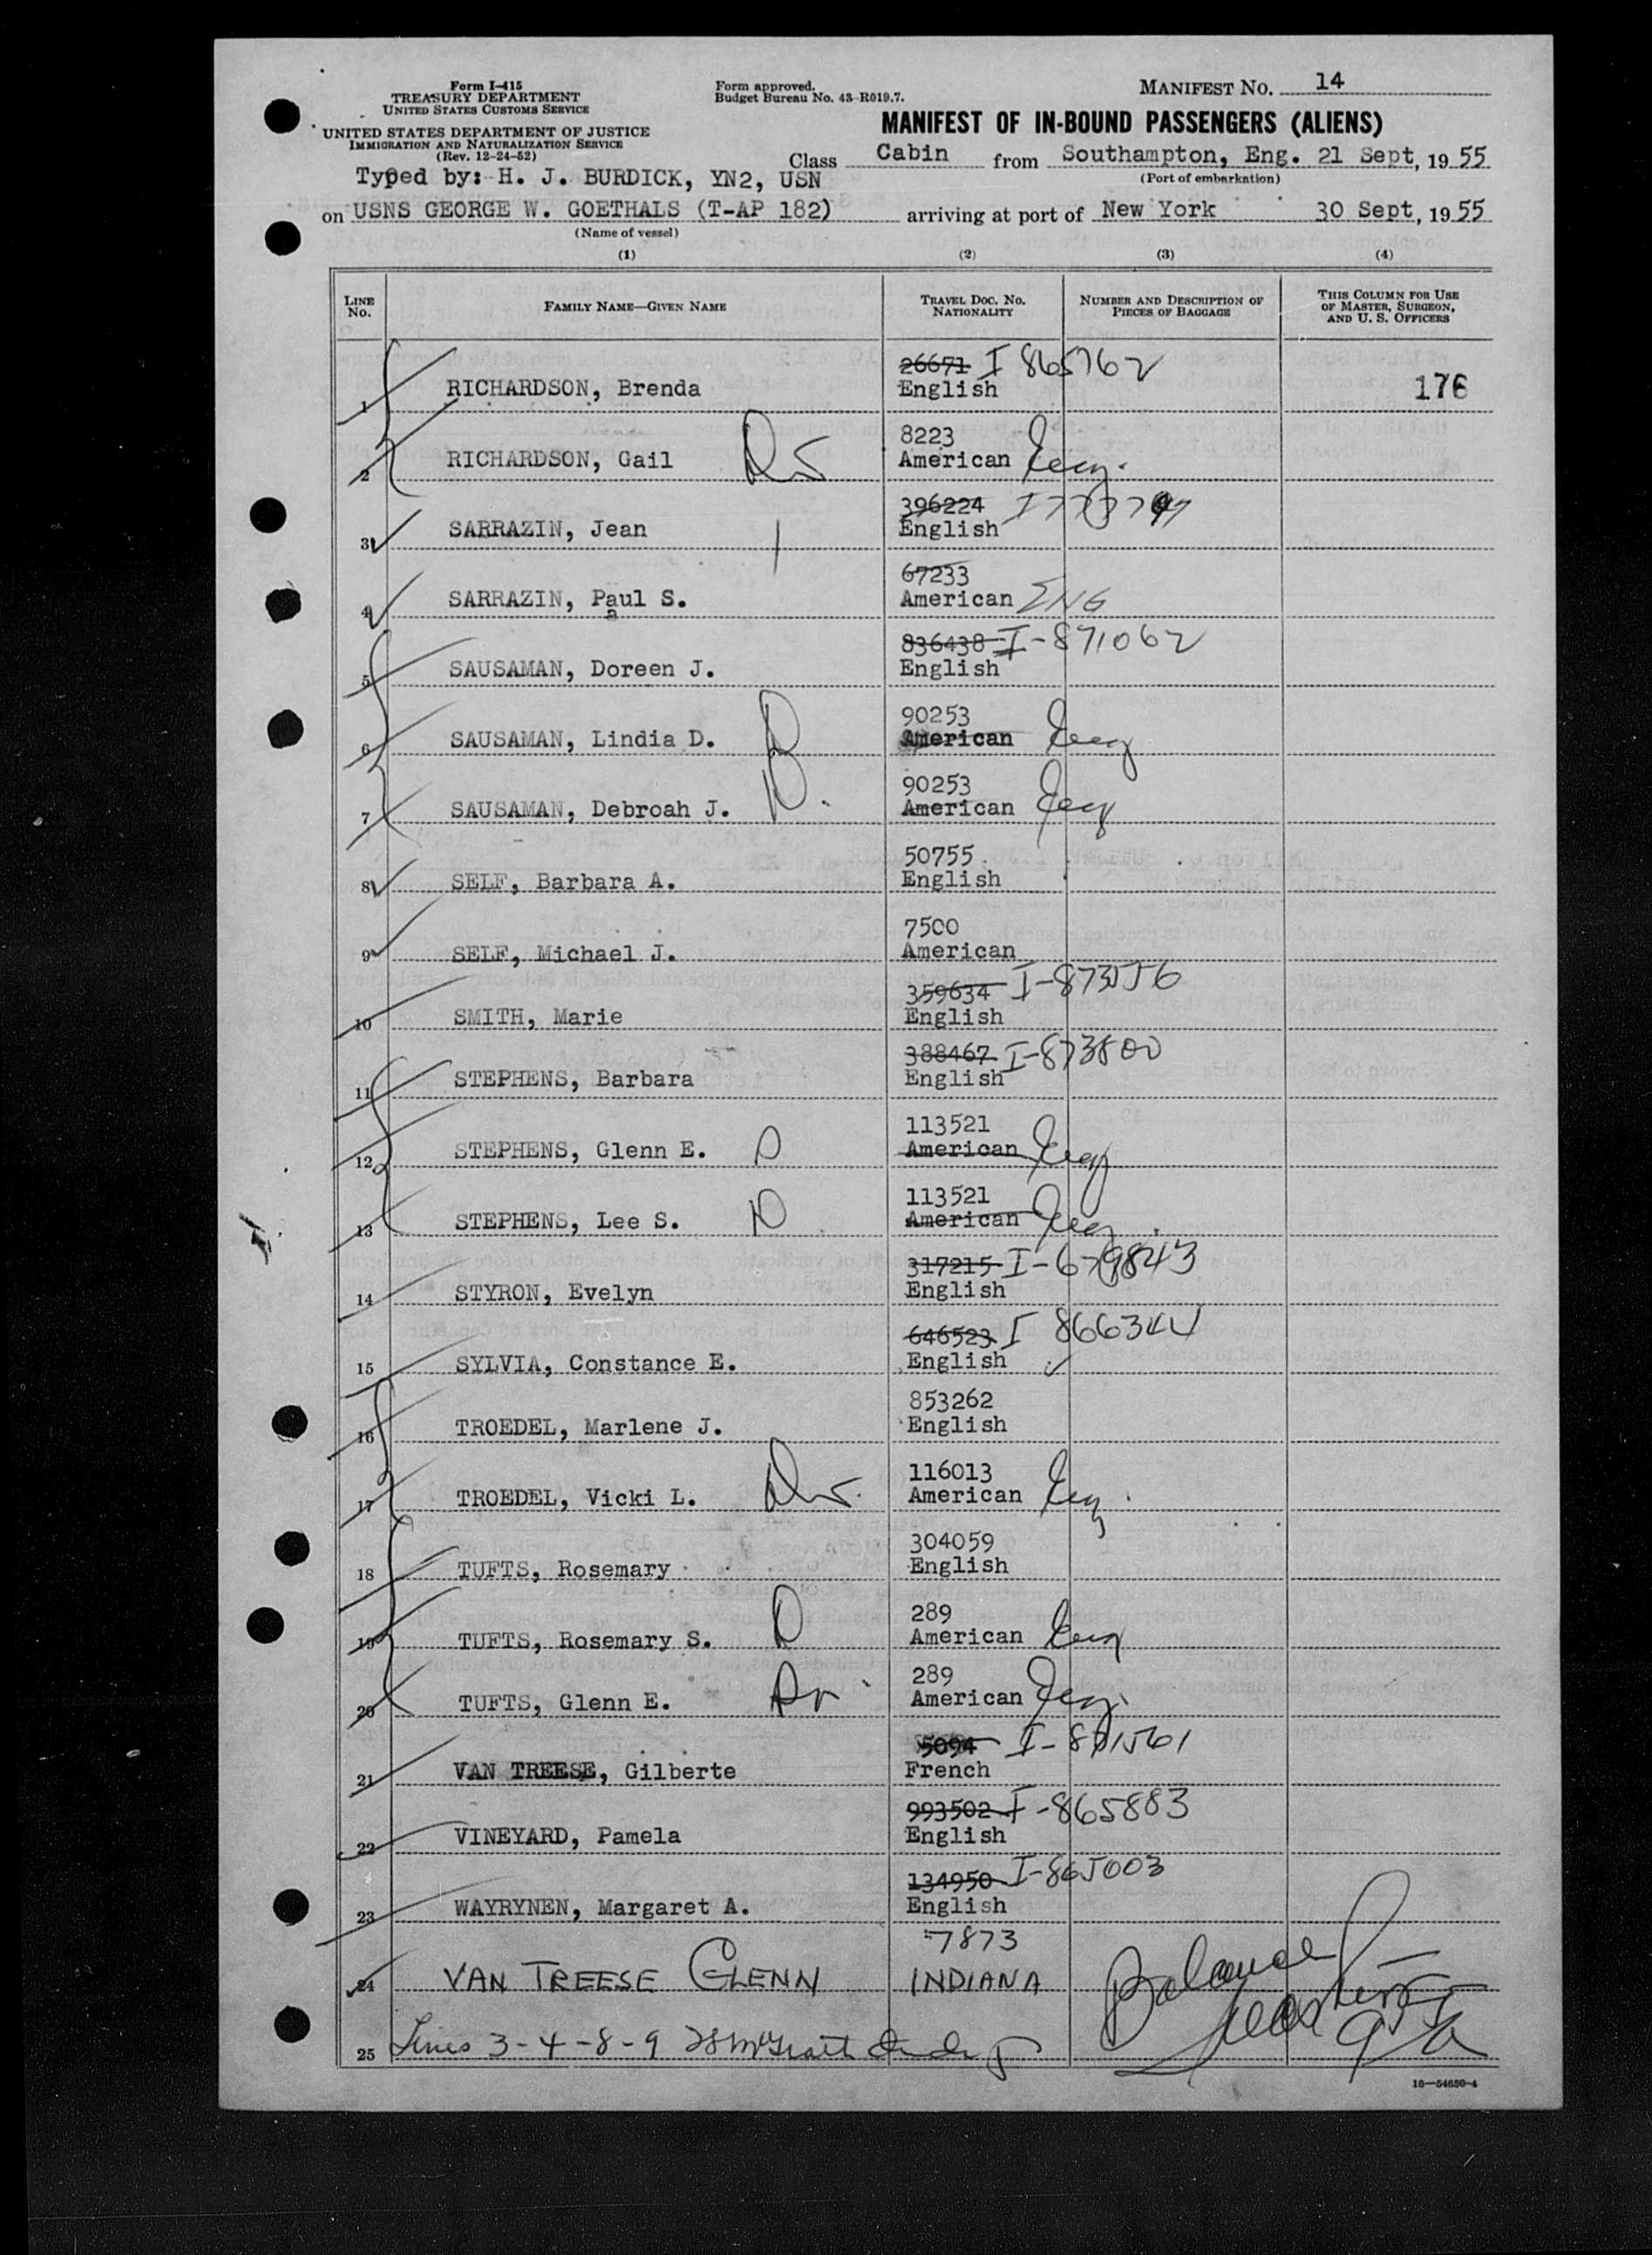 Form I-415
TREASURY DEPARTMENT
UNITED STATES CUSTOMS SERVICE
UNITED STATES DEPARTMENT OF JUSTICE
IMMIGRATION AND NATURALIZATION SERVICE
(Rev. 12-24-52)
Form approved.
Budget Bureau No. 43-R019.7.
MANIFEST NO. 14
MANIFEST OF IN-BOUND PASSENGERS (ALIENS)
Class Cabin from Southampton, Eng. 21 Sept, 1955
(Port of embarkation)
Typed by: H. J. BURDICK, YN2, USN
on USNS GEORGE W. GOETHALS (T-AP 182) arriving at port of New York 30 Sept, 1955
(Name of vessel)
(1) (2) (3) (4)
LINE NO. FAMILY NAME—GIVEN NAME TRAVEL DOC. NO. NATIONALITY NUMBER AND DESCRIPTION OF PIECES OF BAGGAGE THIS COLUMN FOR USE OF MASTER, SURGEON, AND U. S. OFFICERS
26671 I 865762
1 RICHARDSON, Brenda English 176
8223
2 RICHARDSON, Gail American
396224
3 SARRAZIN, Jean English
67233
4 SARRAZIN, Paul S. American ENG
a
836438 I-871062
5 SAUSAMAN, Doreen J. English
90253
6 SAUSAMAN, Lindia D. D American
90253
7 SAUSAMAN, Debroah J. D. American
50755
8 SELF, Barbara A. English
7500
9 SELF, Michael J. American
359634
10 SMITH, Marie English
388467 I-873800
11 STEPHENS, Barbara English
113521
12 STEPHENS, Glenn E. D American
113521
13 STEPHENS, Lee S. D American
317215 I-679843
14 STYRON, Evelyn English
646523 I 866344
15 SYLVIA, Constance E. English
853262
16 TROEDEL, Marlene J. English
116013
17 TROEDEL, Vicki L. American
304059
18 TUFTS, Rosemary English
289
19 TUFTS, Rosemary S. D American
289
20 TUFTS, Glenn E. American
5094 I-871561
21 VAN TREESE, Gilberte French
993502 I-865883
22 VINEYARD, Pamela English
134950 I-865003
23 WAYRYNEN, Margaret A. English
7873
24 VAN TREESE GLENN INDIANA
25 Lines 3-4-8-9
Balance
16—54650-4